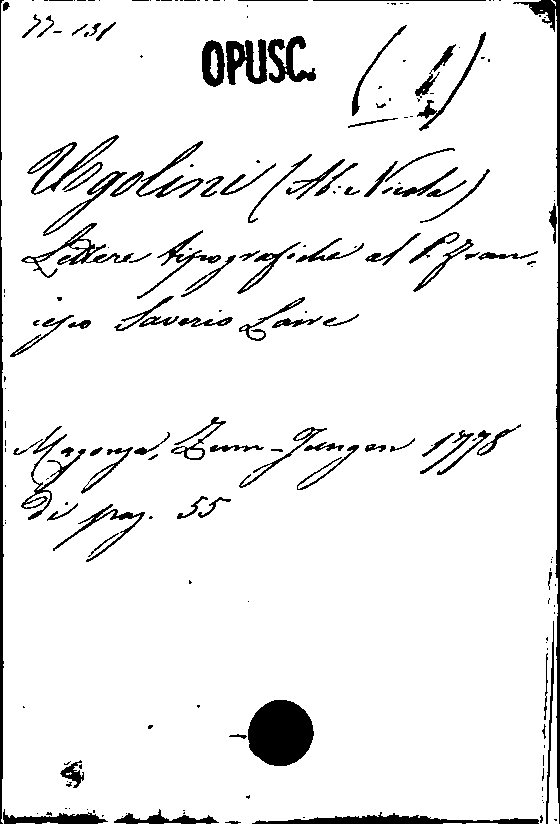 77-131
OPUSC.
Ugolini (Ab: Nicola)
Lettere tipografiche al P. Fran-
cesco Saverio Laire
Magonza, Zum-Jungen 1778
di pag. 55